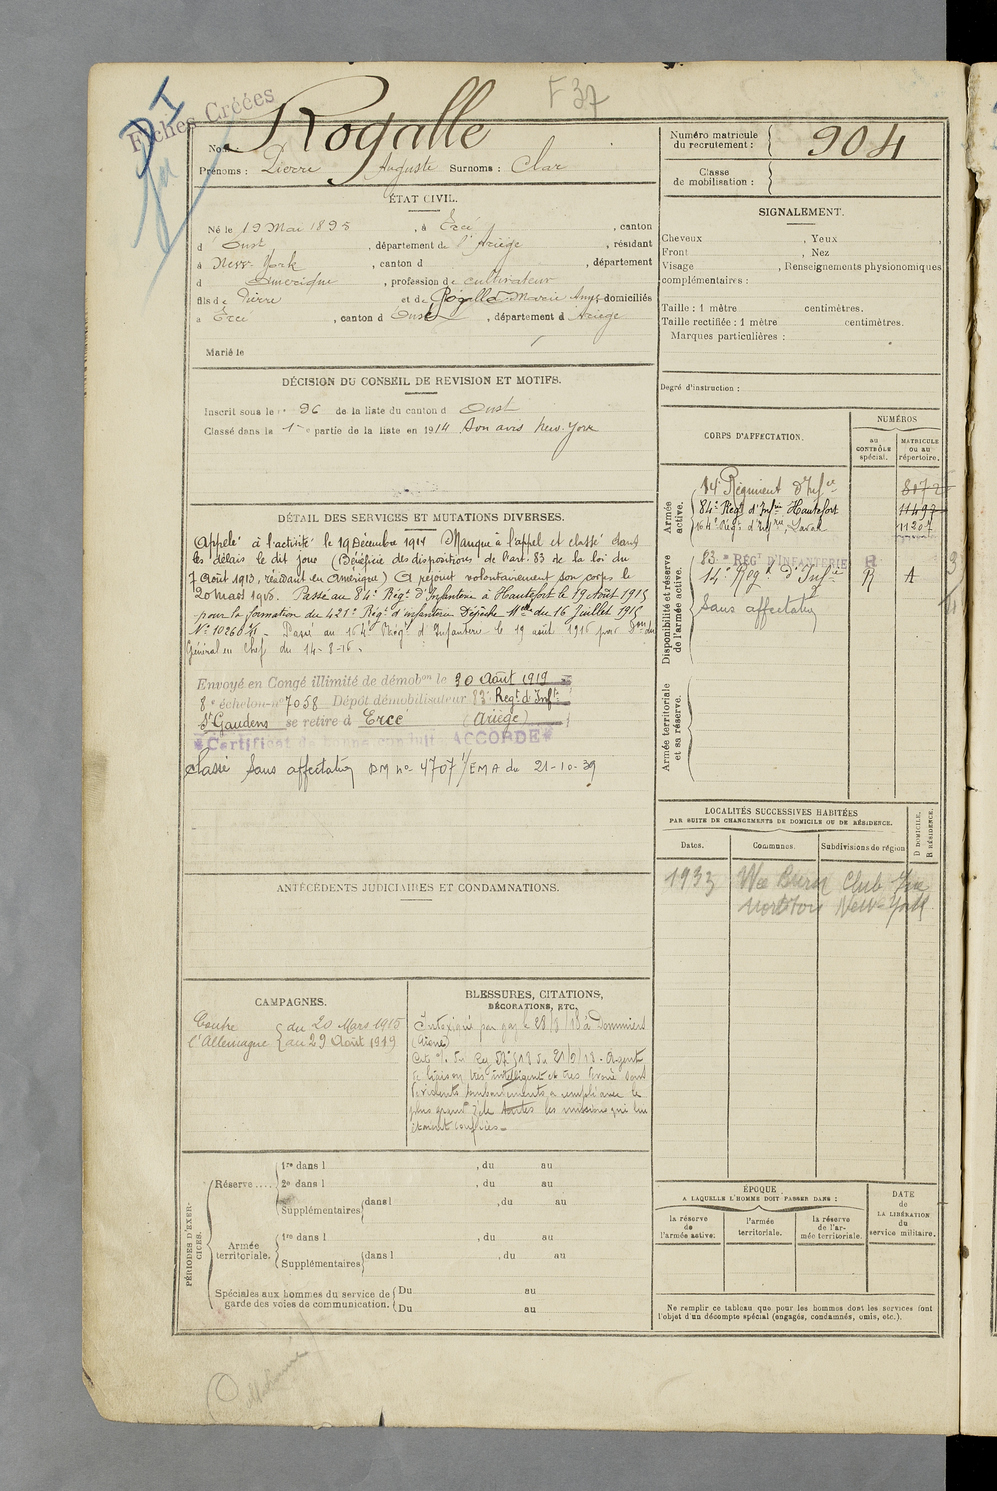 F 37
Fiches Créées
DI
Nom : Rogalle
Prénoms : Pierre Auguste Surnoms : Clar
Numéro matricule
du recrutement : 904
Classe
de mobilisation :
ÉTAT CIVIL.
Né le 19 Mai 1895, à Ercé, canton
d'Oust, département de l'Ariège, résidant
à New-York, canton d , département
d Amérique, profession de cultivateur
fils de Pierre et de Rogalle Marie Ange domiciliés
à Ercé, canton d'Oust, département d Ariège
Marié le
SIGNALEMENT.
Cheveux , Yeux ,
Front , Nez
Visage , Renseignements physionomiques
complémentaires :
Taille : 1 mètre centimètres.
Taille rectifiée : 1 mètre centimètres.
Marques particulières :
Degré d'instruction :
DÉCISION DU CONSEIL DE REVISION ET MOTIFS.
Inscrit sous le nº 96 de la liste du canton d Oust
Classé dans la 1re partie de la liste en 1914 Bon avis New-York
DÉTAIL DES SERVICES ET MUTATIONS DIVERSES.
Appelé à l'activité le 19 Décembre 1914 Manque à l'appel et classé dans
les délais le dit jour (Bénéficie des dispositions de l'art. 83 de la loi du
7 Août 1913, résidant en Amérique) A rejoint volontairement son corps le
20 mars 1915. Passé au 84e Régt d'Infanterie à Hautefort le 19 Août 1915
pour la formation du 421e Régt d'infanterie Dépêche Melle du 16 Juillet 1915
Nº 10260 . Passé au 164e Régt d'Infanterie le 19 août 1916 par du
Général en Chef du 14-8-16.
Envoyé en Congé illimité de démobon le 30 Août 1919
8e échelon nº 7058 Dépôt démobilisateur 83e Regt d'Inftie
St Gaudens se retire à Ercé (Ariège)
Certificat de bonne conduite ACCORDÉ
Classé Sans affectation DM nº 4707 1/EMA du 21-10-39
CORPS D'AFFECTATION.
NUMÉROS
au
CONTRÔLE
spécial.
MATRICULE
OU AU
répertoire.
Armée
active.
14e Régiment d'Infie 8172
84e Régt d'Infie Hautefort 11497
164e Régt d'Infie, Laval 11207
Disponibilité et réserve
de l'armée active.
83e RÉGT D'INFANTERIE R
14e Régt d'Infie R A
Sans affectation
Armée territoriale
et sa réserve.
LOCALITÉS SUCCESSIVES HABITÉES
PAR SUITE DE CHANGEMENTS DE DOMICILE OU DE RÉSIDENCE.
Dates.
Communes.
Subdivisions de région
D DOMICILE.
R RÉSIDENCE.
1933 Wee Burn Club
New-York
ANTÉCÉDENTS JUDICIAIRES ET CONDAMNATIONS.
CAMPAGNES.
Contre
l'Allemagne
du 20 Mars 1915
au 29 Août 1919
BLESSURES, CITATIONS,
DÉCORATIONS, ETC.
Intoxiqué par gaz le 28/8/18 à Dommiers
(Aisne)
Cité O. du Reg. du 21/9/18 - Agent
de liaison très intelligent et très dévoué sous
de violents bombardements a rempli avec le
plus grand zèle toutes les missions qui lui
étaient confiées.
PÉRIODES D'EXERCICES.
Réserve ....
1re dans l , du au
2e dans l , du au
Supplémentaires dans l , du au
Armée
territoriale.
1re dans l , du au
Supplémentaires dans l , du au
Spéciales aux hommes du service de
garde des voies de communication.
Du au
Du au
ÉPOQUE
A LAQUELLE L'HOMME DOIT PASSER DANS :
la réserve
de
l'armée active.
l'armée
territoriale.
la réserve
de l'ar-
mée territoriale.
DATE
de
LA LIBÉRATION
du
service militaire.
Ne remplir ce tableau que pour les hommes dont les services font
l'objet d'un décompte spécial (engagés, condamnés, omis, etc.).